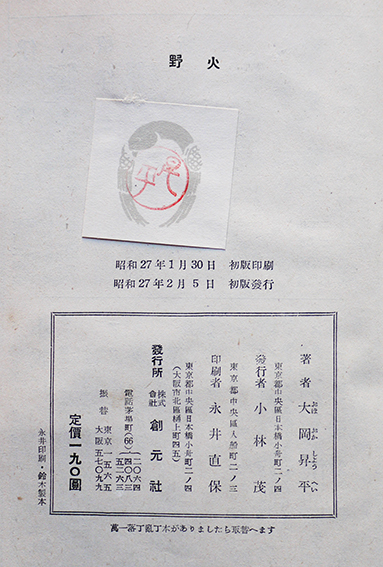 野火
昭和27年1月30日 初版印刷
昭和27年2月5日 初版發行
著者 大岡昇平
おほ おか しよう へい
東京都中央區日本橋小舟町二ノ四
發行者 小林茂
東京都中央區入船町二ノ三
印刷者 永井直保
東京都中央區日本橋小舟町二ノ四
(大阪市北區樋上町四五)
發行所 株式會社 創元社
電話茅場町(66)
振替 東京一五六五
大阪五七〇九九
定價一九〇圓
永井印刷・鈴木製本
萬一落丁亂丁本がありましたら取替へます